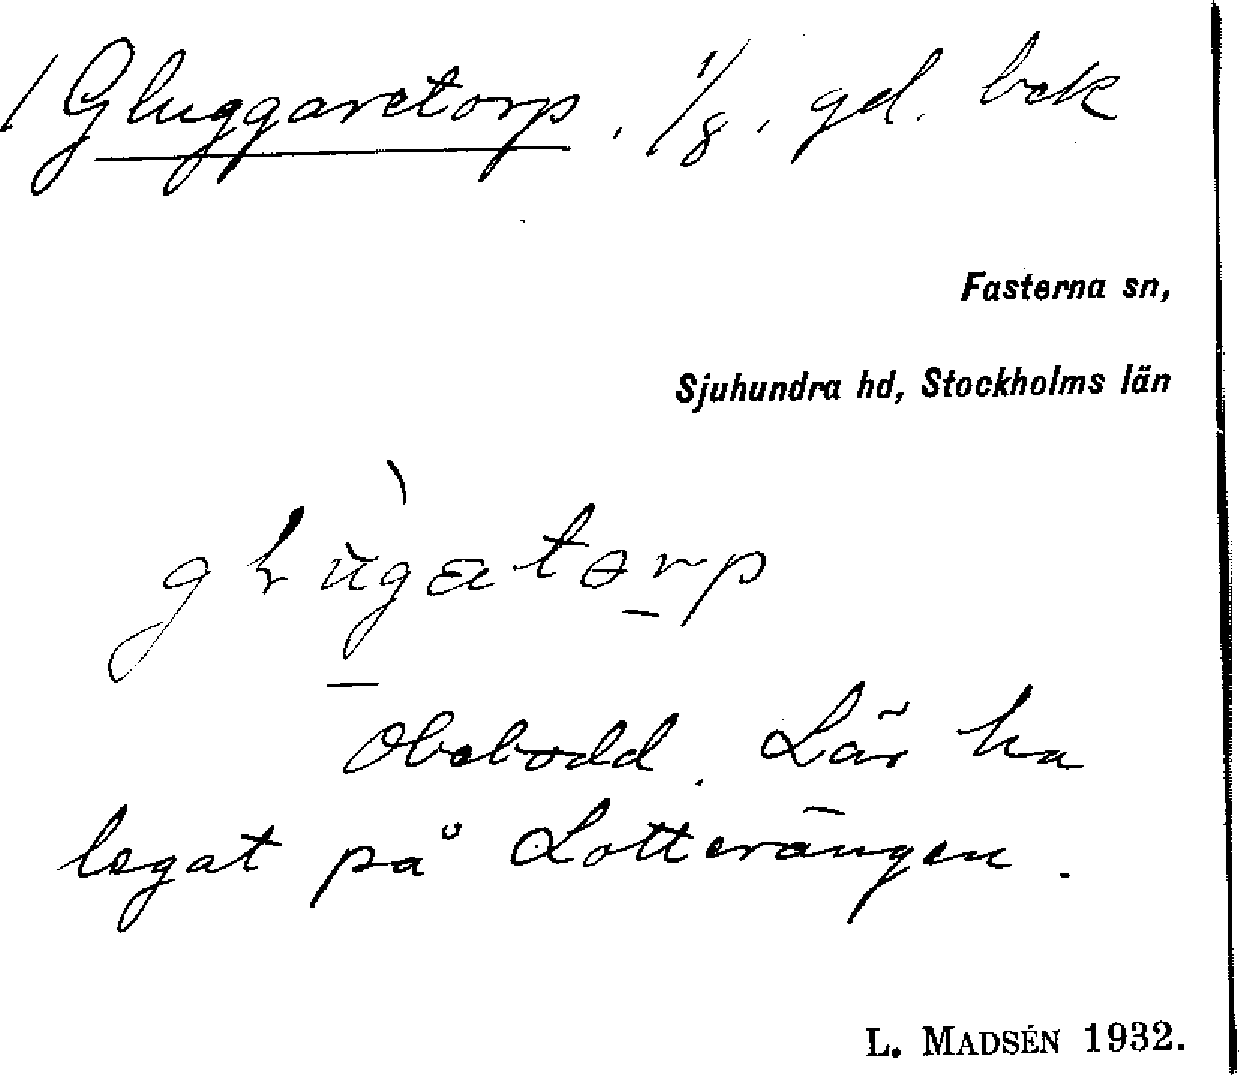 / Gluggaretorp. 1/8. gd. bek
Fasterna sn,
Sjuhundra hd, Stockholms län
Obebodd. Lär ha
legat på Lotterängen.
L. MADSÉN 1932.